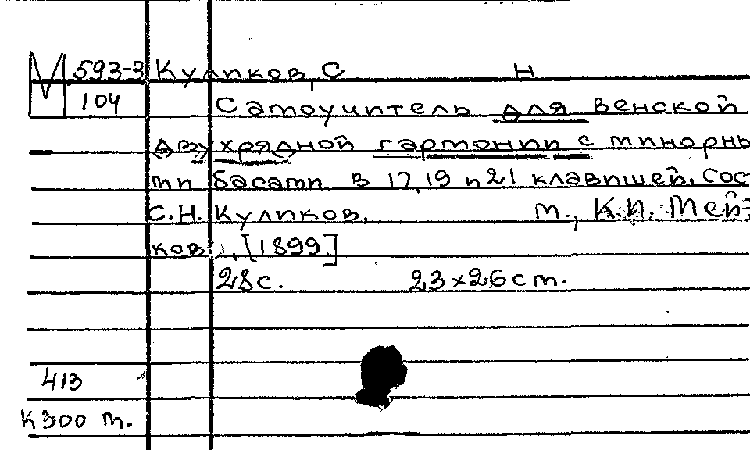 М 593-3 Куликов, С Н
104 Самоучитель для венской
двухрядной гармонии с минорны
ми басами в 17, 19 и 21 клавишей. Сос
С.Н. Куликов. М., К.И. Мей
ков, [1899.]
28 с. 23×26 см.
413
К 300 т.